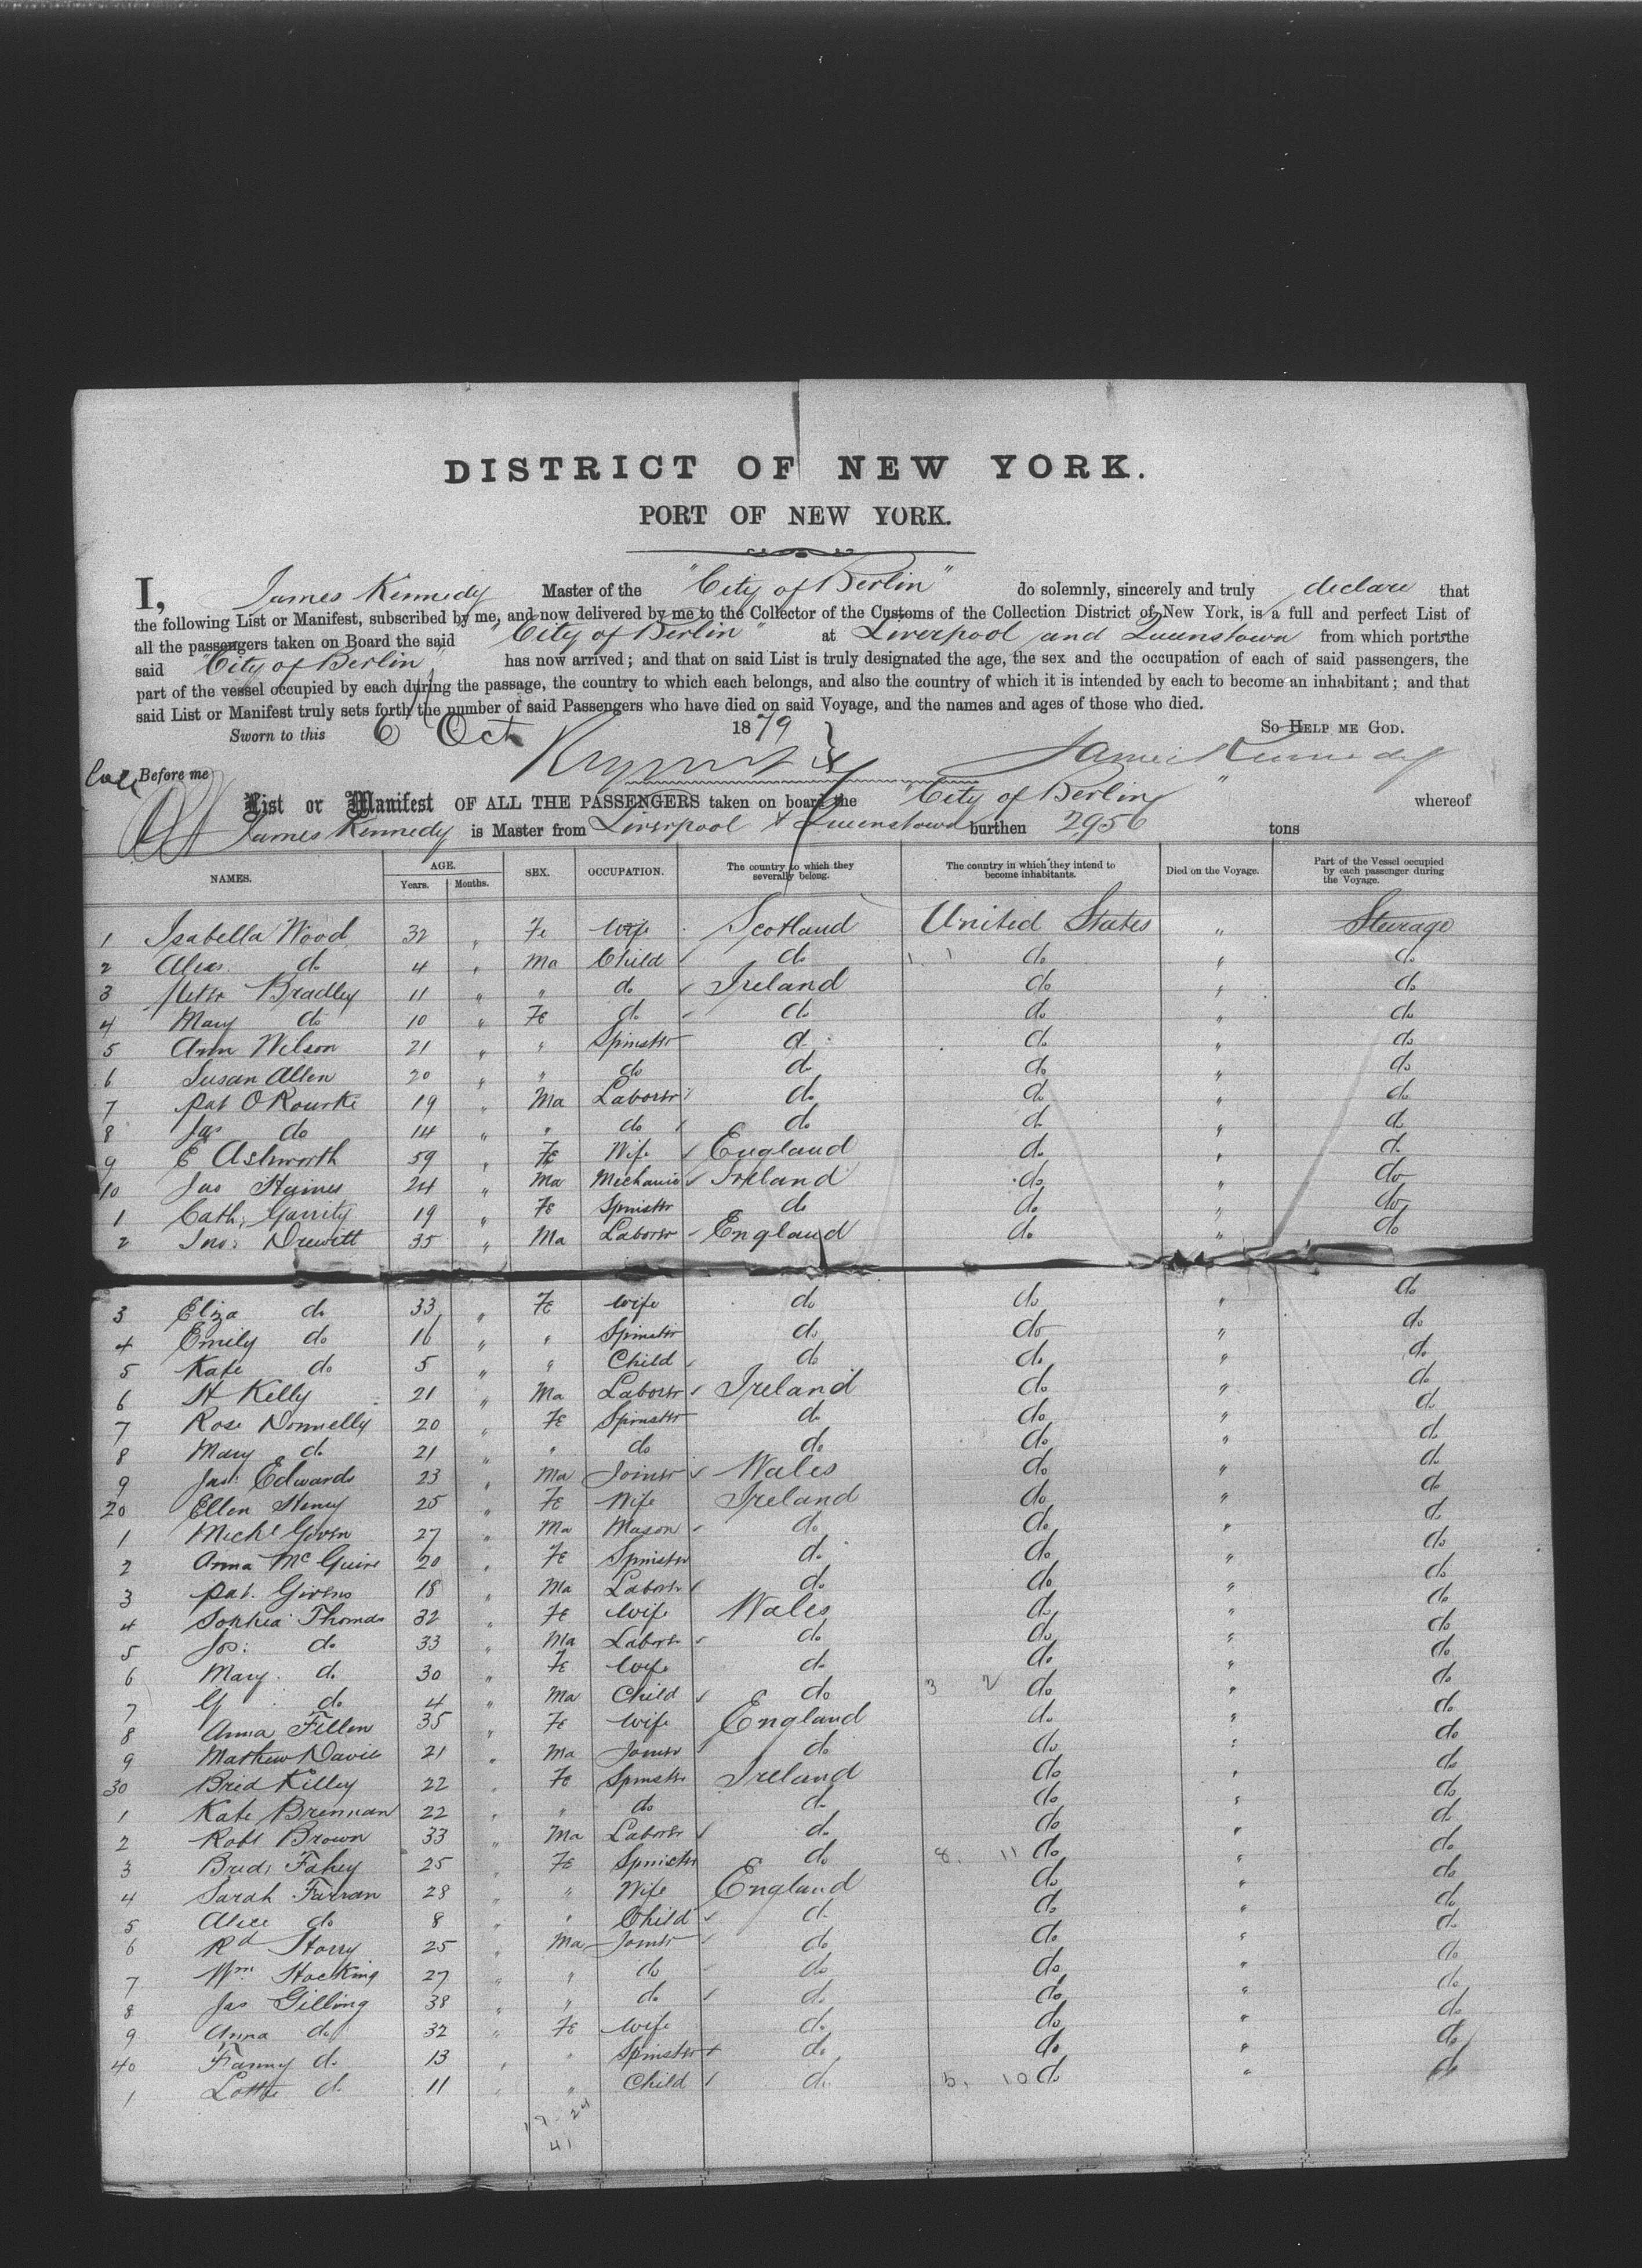 DISTRICT OF NEW YORK.
PORT OF NEW YORK.
I, James Kennedy Master of the "City of Berlin" do solemnly, sincerely and truly declare that
the following List or Manifest, subscribed by me, and now delivered by me to the Collector of the Customs of the Collection District of New York, is a full and perfect List of
all the passengers taken on Board the said "City of Berlin" at Liverpool and Queenstown from which ports the
said "City of Berlin" has now arrived; and that on said List is truly designated the age, the sex and the occupation of each of said passengers, the
part of the vessel occupied by each during the passage, the country to which each belongs, and also the country of which it is intended by each to become an inhabitant; and that
said List or Manifest truly sets forth the number of said Passengers who have died on said Voyage, and the names and ages of those who died.
Sworn to this 6 Oct 1879 SO HELP ME GOD.
Before me James Kennedy
List or Manifest OF ALL THE PASSENGERS taken on board the "City of Berlin" whereof
James Kennedy is Master from Liverpool & Queenstown burthen 2956 tons
NAMES. AGE. Years. Months. SEX. OCCUPATION. The country to which they severally belong. The country in which they intend to become inhabitants. Died on the Voyage. Part of the Vessel occupied by each passenger during the Voyage.
1 Isabella Wood 32 " Fe Wife Scotland United States " Steerage
2 Alex. do 4 " Ma Child do 1. 1 do " do
3 Peter Bradley 11 " " do Ireland do " do
4 Mary do 10 " Fe do do do " do
5 Ann Wilson 21 " " Spinster d. do " do
6 Susan Allen 20 " " do do do " do
7 Pat O Rourke 19 " Ma Laborer do do " do
8 Jas do 14 " " do do do " do
9 E Ashworth 59 " Fe Wife England do " do
10 Jno Haines 24 " Ma Mechanic Ireland do " do
1 Cath: Garrity 19 " Fe Spinster do do " do
2 Jno: Drewitt 35 " Ma Laborer England do " do
3 Eliza do 33 " Fe Wife do do " do
4 Emily do 16 " " Spinster do do " do
5 Kate do 5 " " Child do do " do
6 H Kelly 21 " Ma Laborer Ireland do " do
7 Rose Donnelly 20 " Fe Spinster do do " do
8 Mary do 21 " " do do do " do
9 Jas: Edwards 23 " Ma Joiner Wales do " do
20 Ellen Henry 25 " Fe Wife Ireland do " do
1 Michl Goven 27 " Ma Mason do do " do
2 Anna McGuire 20 " Fe Spinster do do " do
3 Pat. Givens 18 " Ma Laborer do do " do
4 Sophia Thomas 32 " Fe Wife Wales do " do
5 Jos: do 33 " Ma Laborer do do " do
6 Mary. do 30 " Fe Wife do do " do
7 do 4 " Ma Child do 3 2 do " do
8 Anna Fillen 35 " Fe Wife England do " do
9 Mathew Davis 21 " Ma Joiner do do " do
30 Brid Killey 22 " Fe Spinster Ireland do " do
1 Kate Brennan 22 " " do do do " do
2 Robt Brown 33 " Ma Laborer do do " do
3 Brid: Fahey 25 " Fe Spinster do 8. 11 do " do
4 Sarah Farran 28 " " Wife England do " do
5 Alice do 8 " " Child do do " do
6 Rd Storry 25 " Ma Joiner do do " do
7 Wm Hocking 27 " " do do do " do
8 Jas Gilling 38 " " do do do " do
9 Anna do 32 " Fe Wife do do " do
40 Fanny do 13 " " Spinster do do " do
1 Lottie do 11 " " Child do 5, 10 do " do
17 24
41